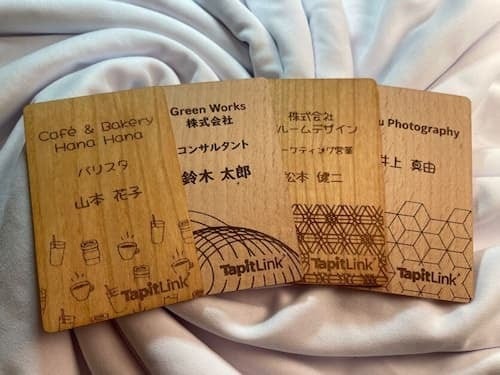 Café & Bakery
Hana Hana
バリスタ
山本 花子
TapitLink
Green Works
株式会社
コンサルタント
鈴木 太郎
TapitLink
株式会社
ルームデザイン
ーケティング営業
松本 健二
TapitLink
u Photography
井上 真由
TapitLink